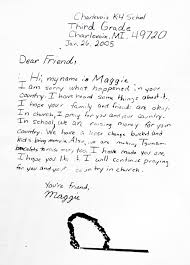 Charlevoix K4 School
Third Grade
Charlevoix, MI. 49720
Jan. 26, 2005
Dear Friend,
Hi, my name is Maggie.
I am sorry what happened in your
country. I have heard some things about it.
I hope your family and friends are okay.
In church, I pray for you and our country.
In school, we are raising money for your
country. We have a large change bucket and
kid's bring money in. Also, we are making Tsunami
bracelets to raise money. I have made you one.
I hope you like it. I will continue praying
for you and your country in church.
You're Friend,
Maggie